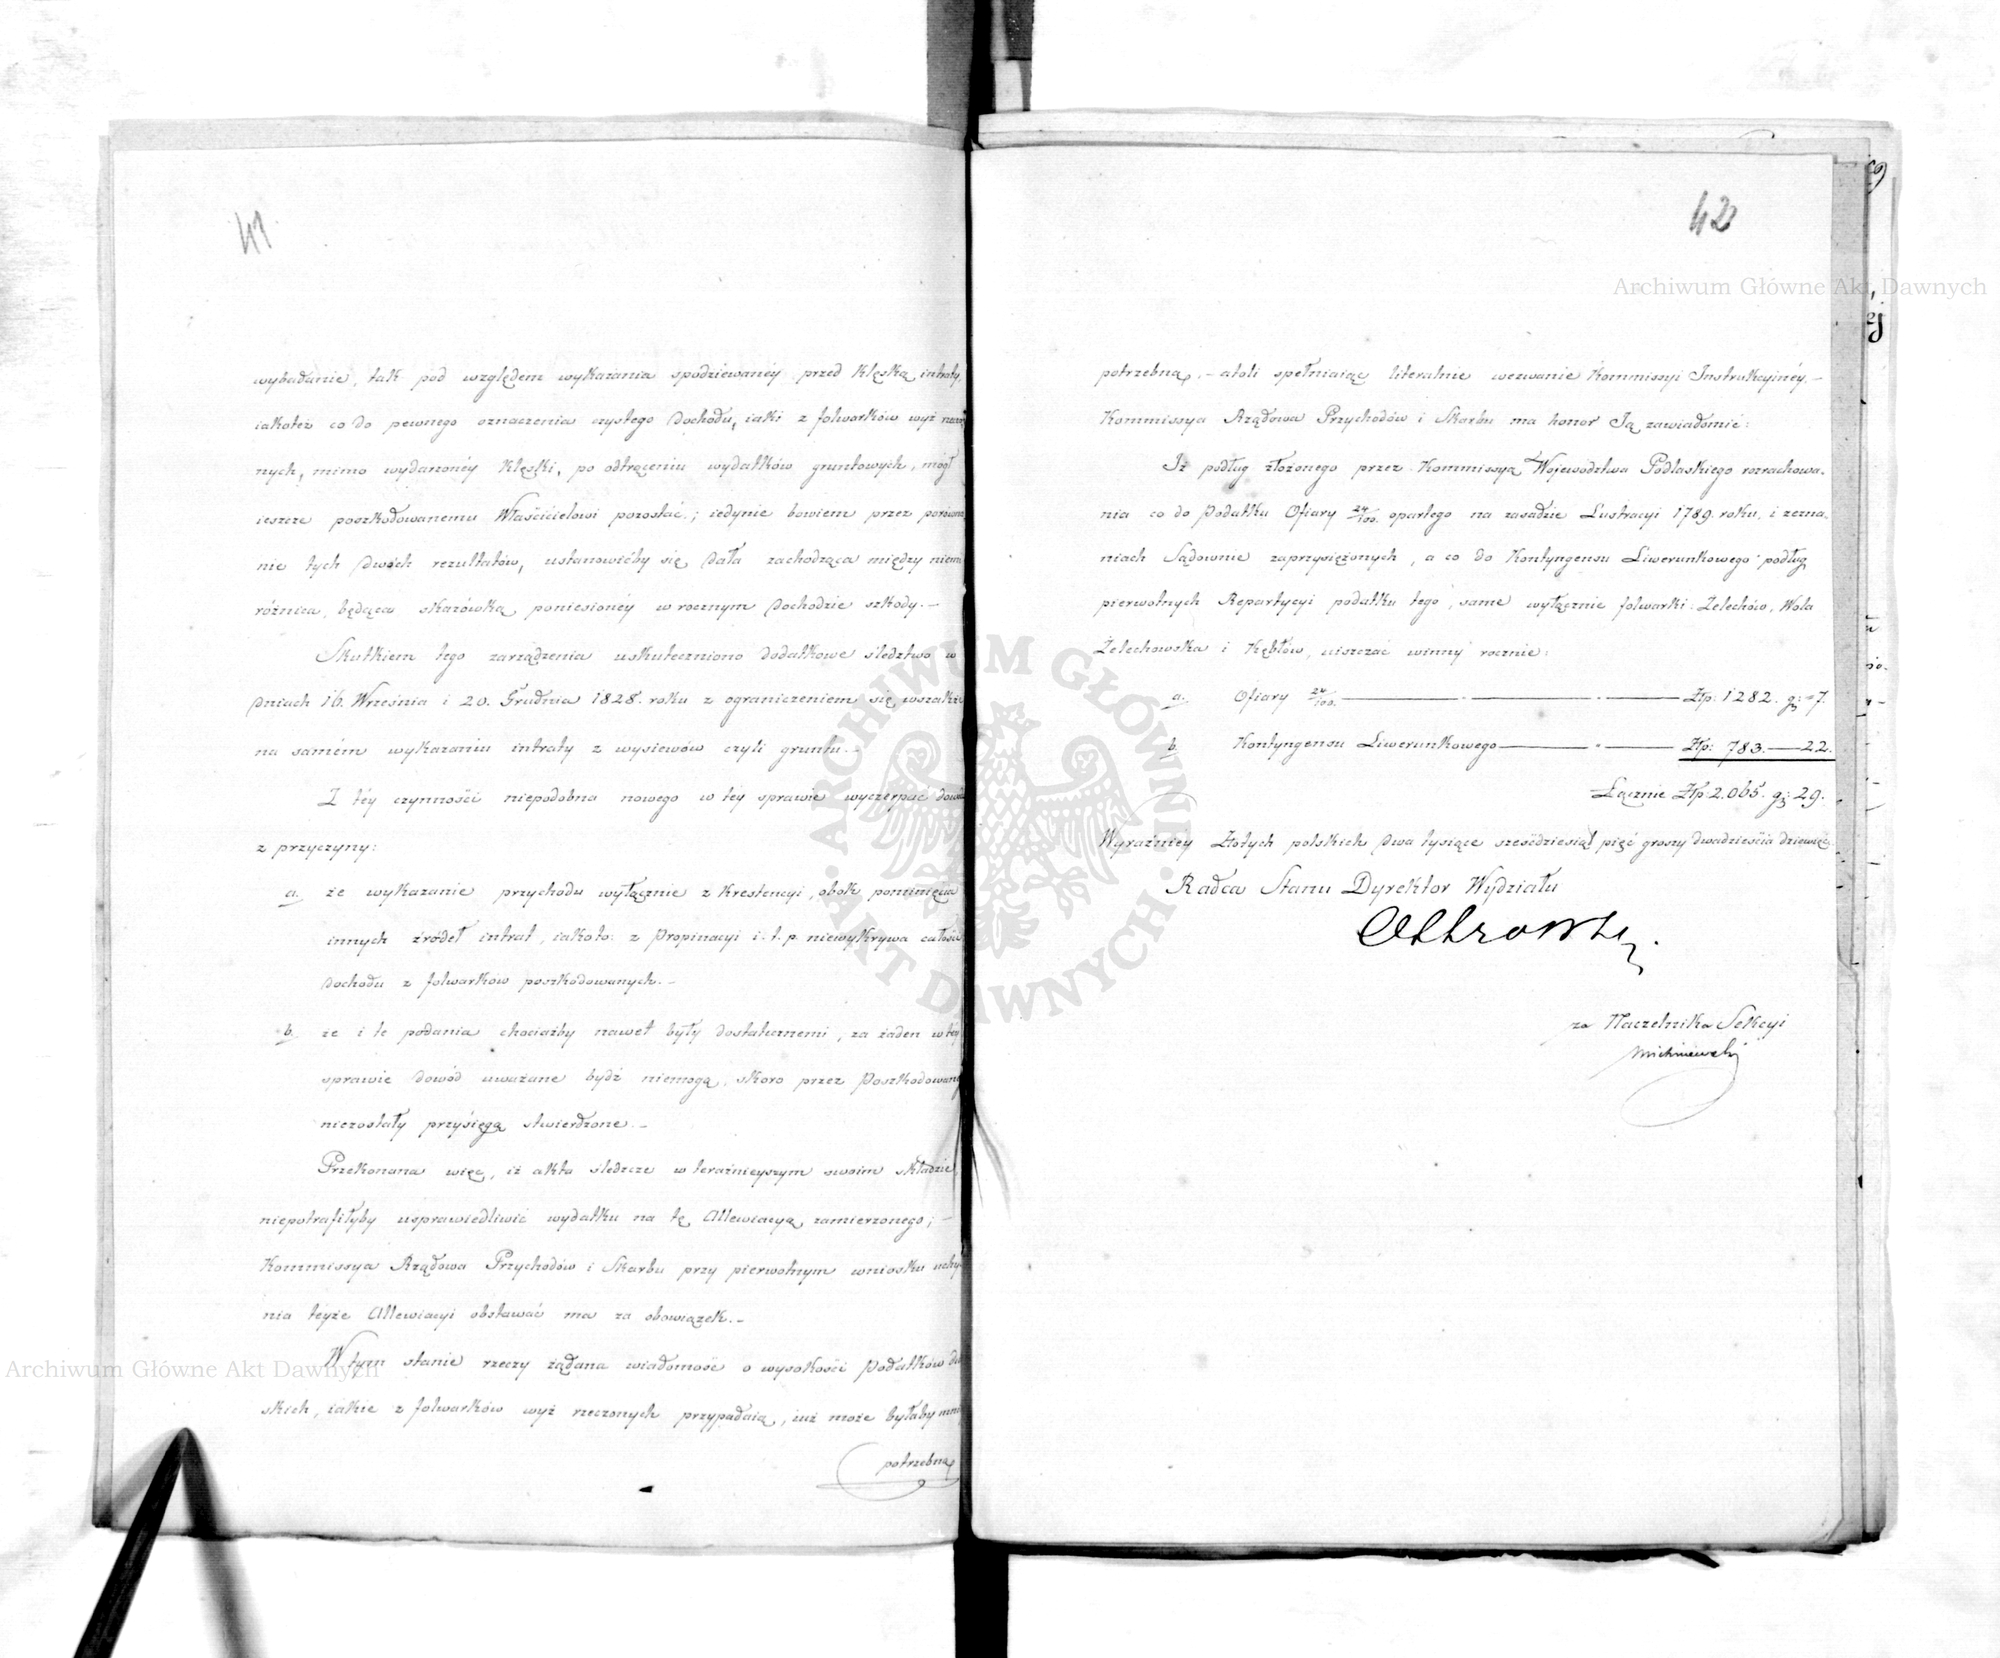 41
wybadanie, tak pod względem wykazania spodziewanéy przed klęską intraty,
iakoteż co do pewnego oznaczenia czystego dochodu, iaki z folwarków wyż
nych, mimo wydarzonéy klęski, po odtrąceniu wydatków gruntowych, mógł
ieszcze poszkodowanemu Właścicielowi pozostać; iedynie bowiem przez porówna
nie tych dwóch rezultatów, ustanowićby się dała zachodząca między niemi
różnica, będąca skazówką poniesionéy w rocznym dochodzie szkody.—
Skutkiem tego zarządzenia uskuteczniono dodatkowe śledztwo w
dniach 16. Września i 20. Grudnia 1828. roku z ograniczeniem się wszakże
na samém wykazaniu intraty z wysiewów czyli gruntu.—
Z téy czynności niepodobna nowego w téy sprawie wyczerpać
z przyczyny:
a. że wykazanie przychodu wyłącznie z krestencyi, obok pominięcia
innych źródeł intrat, iakoto: z Propinacyi i. t. p. niewykrywa
dochodu z folwarków poszkodowanych.—
b. że i te podania chociażby nawet były dostatecznemi, za żaden w téy
sprawie dowód uważane bydź niemogą, skoro przez Poszkodowane
niezostały przysięgą stwierdzone.—
Przekonana więc, iż akta śledcze w teraźnieyszym swoim składzie,
niepotrafiłyby usprawiedliwić wydatku na tę Allewiacyą zamierzonego;—
Kommissya Rządowa Przychodów i Skarbu przy pierwotnym wniosku uchyle
nia teyże Allewiacyi obstawać ma za obowiązek.—
W tym stanie rzeczy żądana wiadomość o wysokości Podatków
skich, iakie z folwarków wyż rzeczonych przypadaią, iuż może byłaby
potrzebną
42
potrzebną,— atoli spełniaiąc literalnie wezwanie Kommissyi Instrukcyinéy,—
Kommissya Rządowa Przychodów i Skarbu ma honor Ją zawiadomić:
Iż podług złożonego przez Kommissyą Województwa Podlaskiego rozrachowa-
nia co do Podatku Ofiary 24/100. opartego na zasadzie Lustracyi 1789. roku, i zezna-
niach Sądownie zaprzysiężonych, a co do Kontyngensu Liwerunkowego podług
pierwotnych Repartycyi podatku tego, same wyłącznie folwarki: Żelechów, Wola
Żelechowska i Kębłów, uiszczać winny rocznie:
a. Ofiary 24/100. — Złp: 1282. gr: 7.
b. Kontyngensu Liwerunkowego — Złp: 783. — 22.
Łącznie Złp: 2.065. gr: 29.
Wyraźniey Złotych polskich dwa tysiące sześćdziesiąt pięć groszy dwadzieścia dziewięć.
Radca Stanu Dyrektor Wydziału
za Naczelnika Sekcyi
Archiwum Główne Akt Dawnych
Archiwum Główne Akt Dawnych
ARCHIWUM GŁÓWNE AKT DAWNYCH